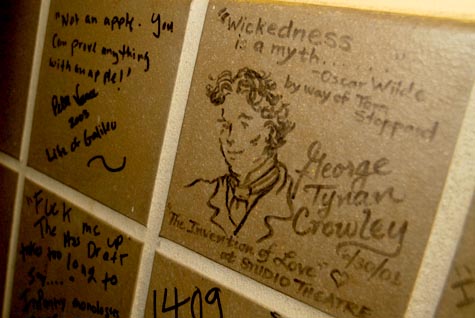 "Not an apple. You
can prove anything
with an apple!"
2003
Life of Galileo
"Wickedness
is a myth....
-Oscar Wilde
by way of Tom
Stoppard
George
Tynan
Crowley
6/30/01
"The Invention of Love"
at STUDIO THEATRE
"Fuck me up.
The
too long to
Say....
monologues
1409